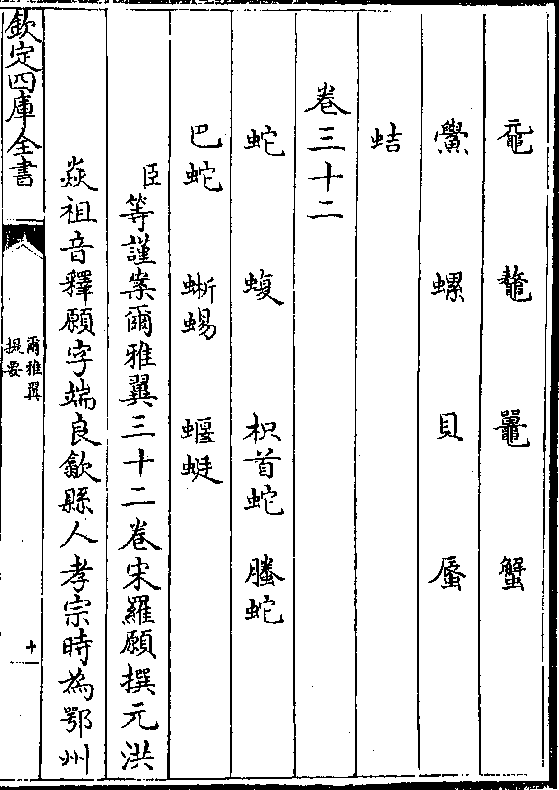 黿 鼇 鼉 蟹
鱟 螺 貝 蜃
蛣
卷三十二
蛇 蝮 枳首蛇 螣蛇
巴蛇 蜥蜴 蝘蜓
臣等謹案爾雅翼三十二卷宋羅願撰元洪
焱祖音釋願字端良歙縣人孝宗時為鄂州
欽定四庫全書
爾雅翼
提要
十